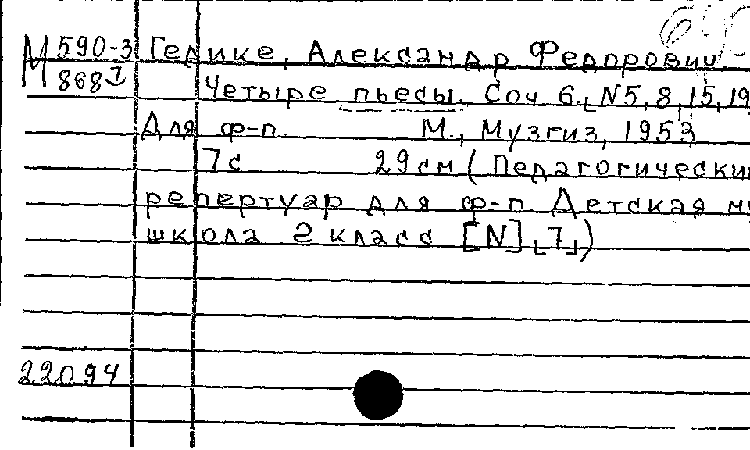 М 590-3 Гедике, Александр Федорович
868 I Четыре пьесы. Соч 6. [N5, 8, 15, 19
Для ф-п. М., Музгиз, 1953
7 с 29 см (Педагогический
репертуар для ф-п Детская му
школа 2 класс [N] [7])
22094